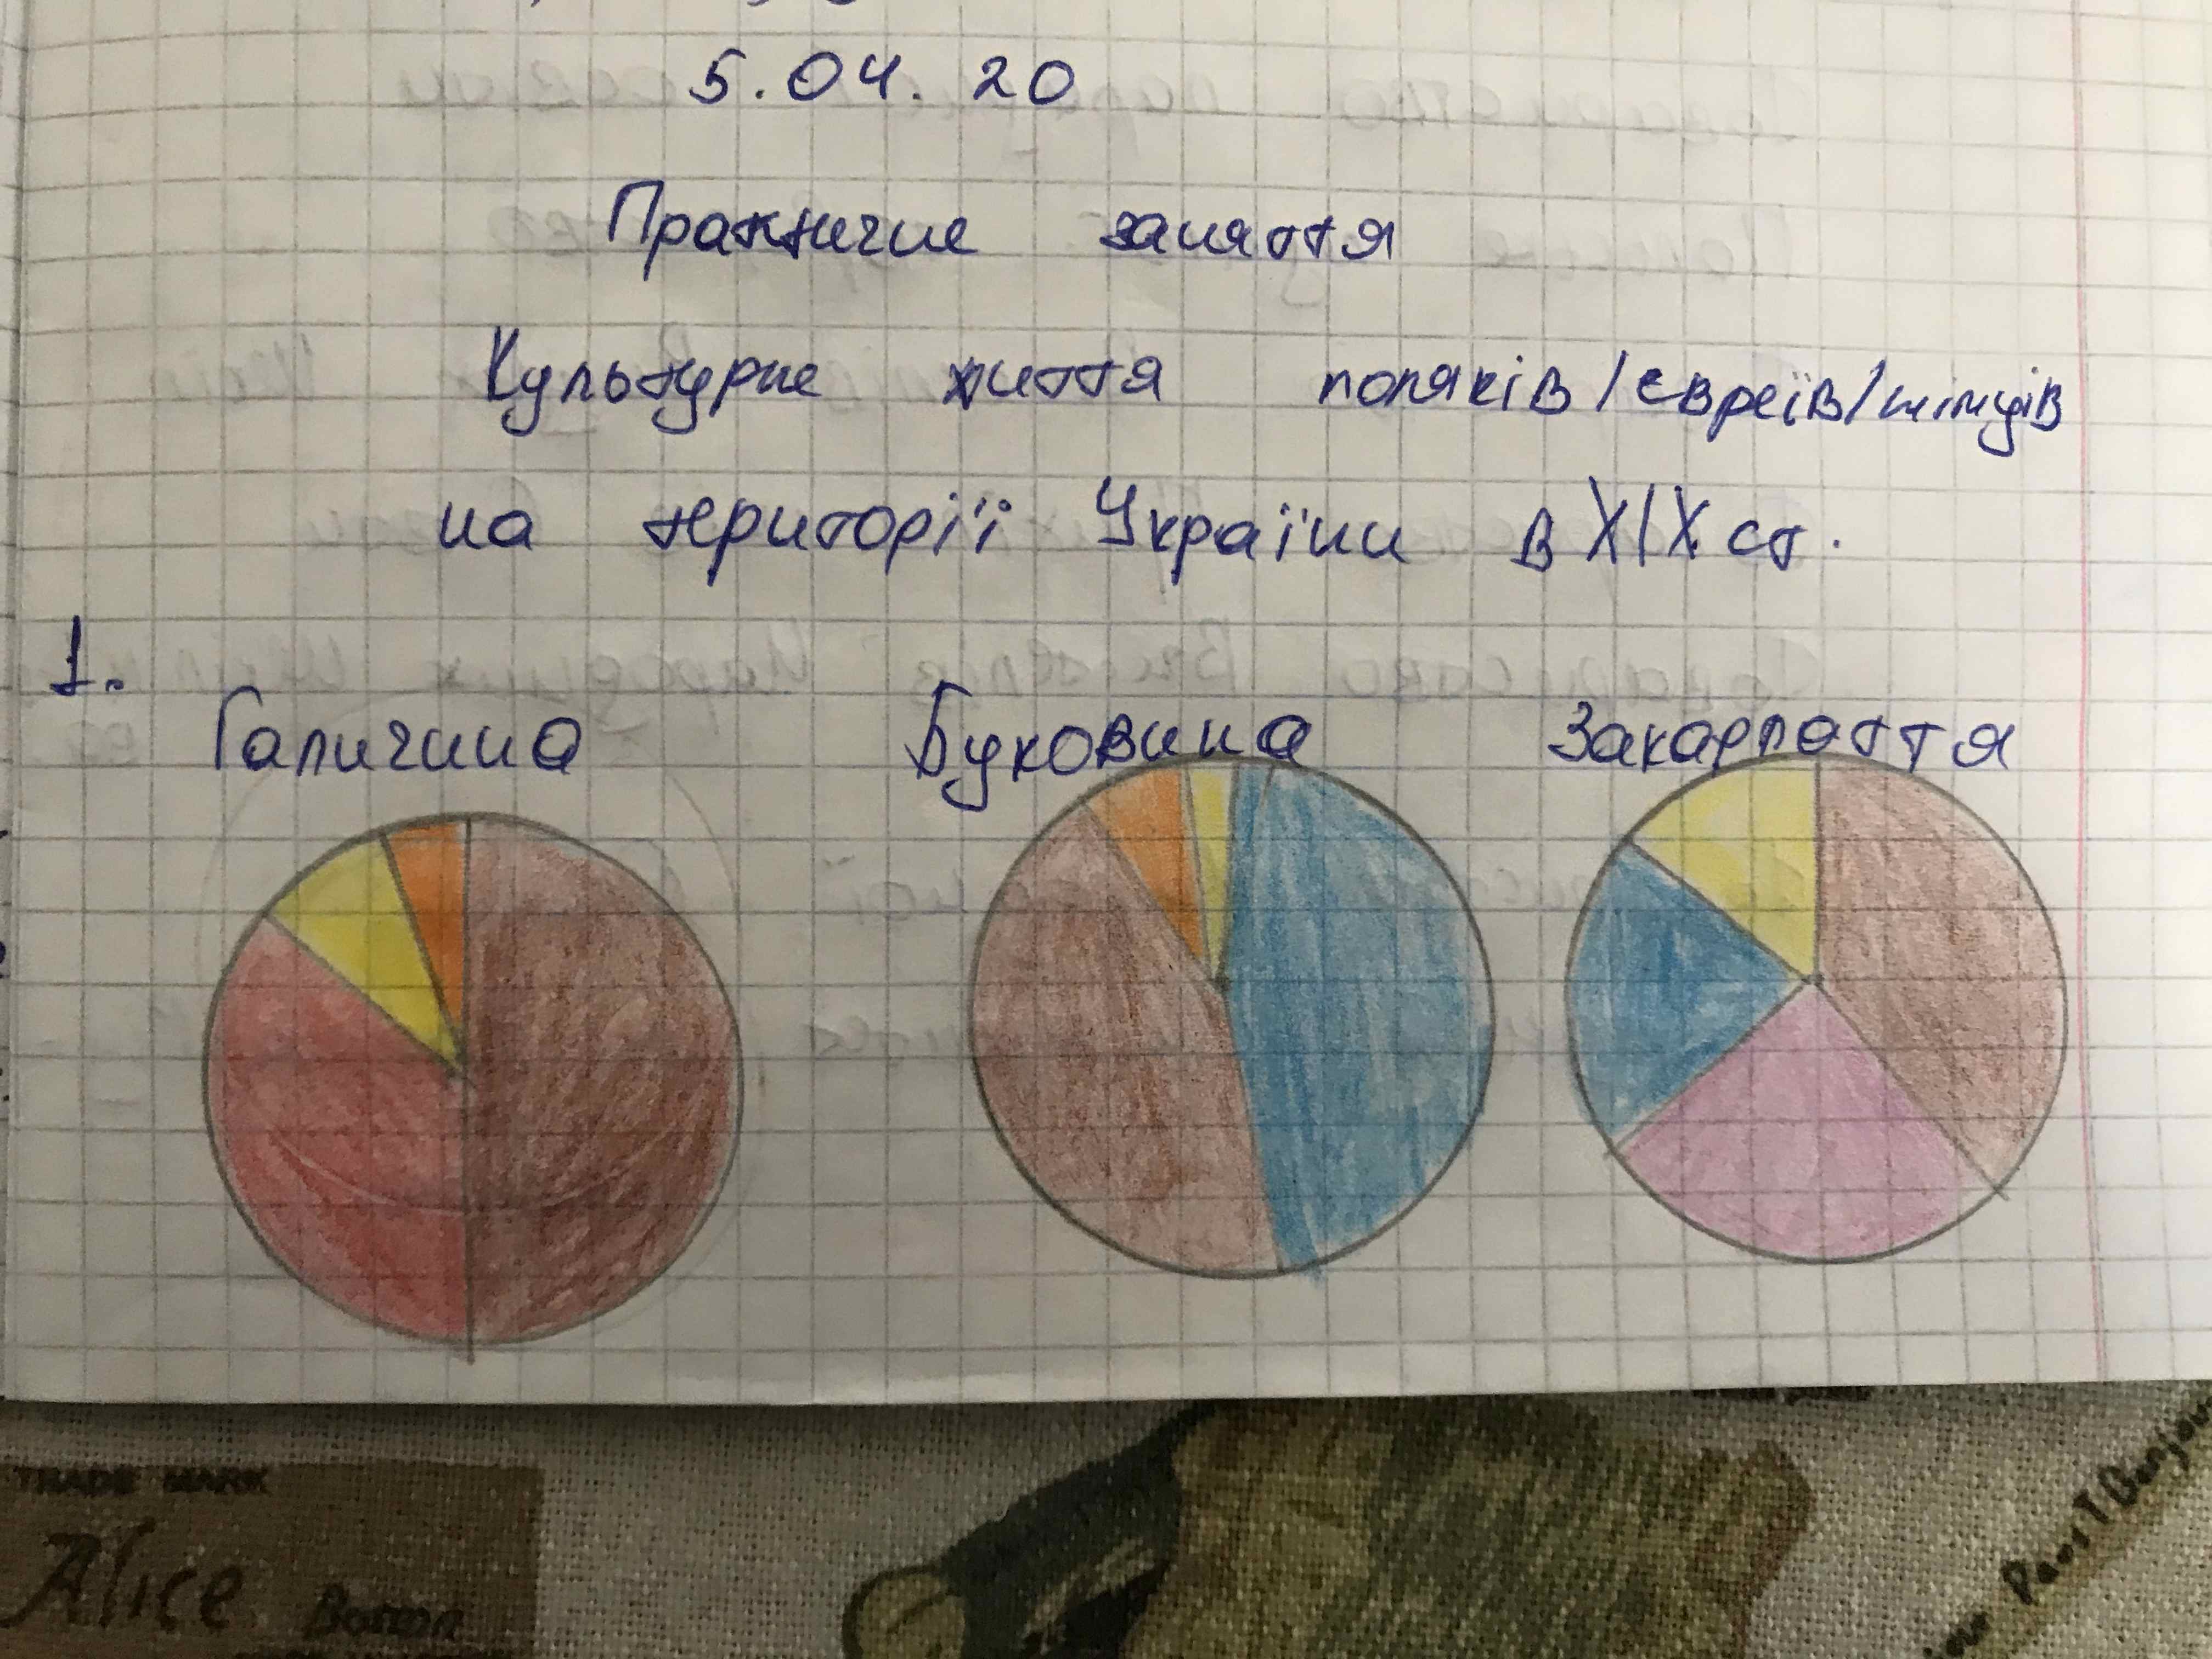 5.04.20
Практичне заняття
Культурне життя поляків/євреїв/німців
на території України в XIX ст.
1.
Галичина Буковина Закарпаття
TRADE MARK
Alice